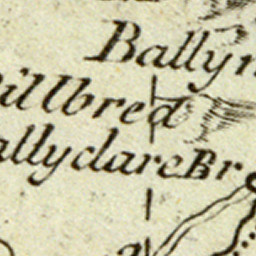 Ballyn
illbred
allyclare Br